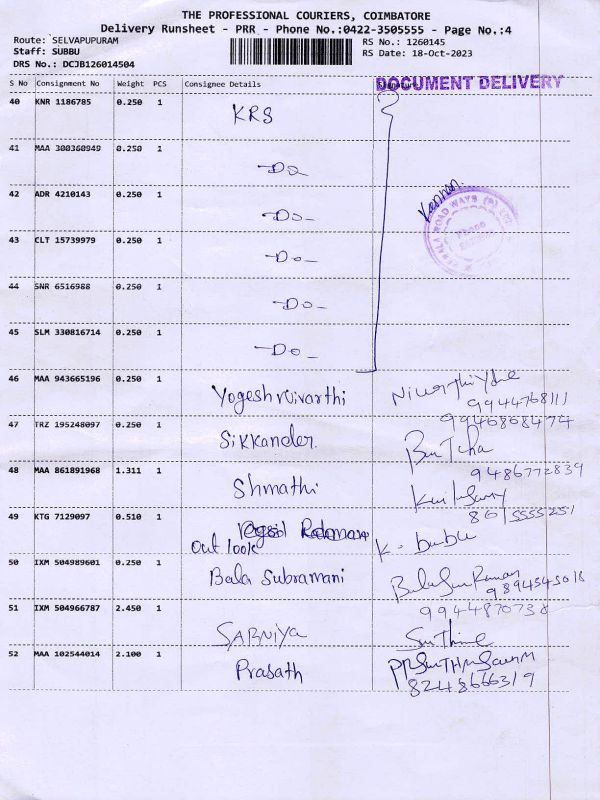 THE PROFESSIONAL COURIERS, COIMBATORE
Delivery Runsheet - PRR - Phone No.:0422-3505555 - Page No.:4
Route: SELVAPUPURAM
Staff: SUBBU
DRS No.: DCJB126014504
RS No.: 1260145
RS Date: 18-Oct-2023
DOCUMENT DELIVERY
S No Consignment No Weight PCS Consignee Details
40 KNR 1186785 0.250 1 KRS
41 MAA 300360949 0.250 1 -Do-
42 ADR 4210143 0.250 1 -Do-
Kannan
43 CLT 15739979 0.250 1 -Do-
44 SNR 6516988 0.250 1 -Do-
45 SLM 330816714 0.250 1 -Do-
46 MAA 943665196 0.250 1 Yogeshrvivarthi
9944768111
47 TRZ 195248097 0.250 1 Sikkander.
9946868474
48 MAA 861891968 1.311 1 Shmathi
9486772839
49 KTG 7129097 0.510 1
8615555251
Out look K. bablu
50 IXM 504989601 0.250 1 Bala Subramani
9894545018
51 IXM 504966787 2.450 1 SABNIYA
9944870738
52 MAA 102544014 2.100 1 Prasath
8248666319